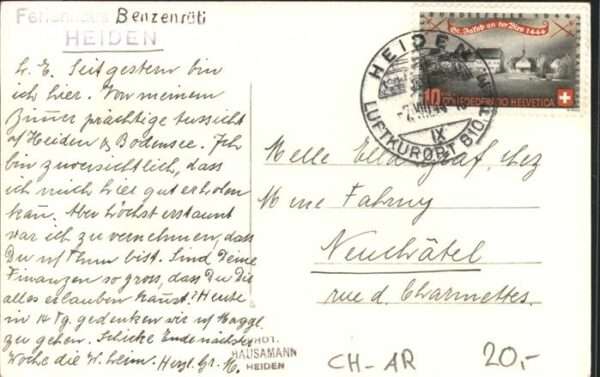 Ferienhaus Benzenrüti
HEIDEN
L. E. Seit gestern bin
ich hier. Von meinem
Zimmer prächtige Aussicht
a/Heiden & Bodensee. Ich
bin zuversichtlich, dass
ich mich hier gut erholen
kann. Aber höchst erstaunt
war ich zu vernehmen, dass
Du a/Thun bist. Sind Deine
Finanzen so gross, dass Du Dir
alles erlauben kannst? Heute
in 14 Tg. gedenken wir a/
zu gehen. Schicke Ende nächster
Woche die W. heim. Herzl. Gr. M.
PHOT.
HAUSAMANN
HEIDEN
HEIDEN
LUFTKURORT 810 M
IX
St. Jakob an der Birs 1444
10
CONFOEDERATIO HELVETICA
Melle Ella Graf, chez
Mme Fahrny
Neuchâtel
rue d. Charmettes.
CH-AR 20,-